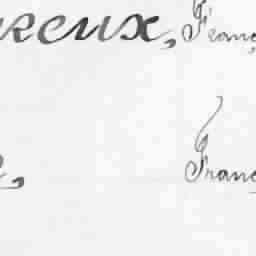 reux, Franç
e, Franç